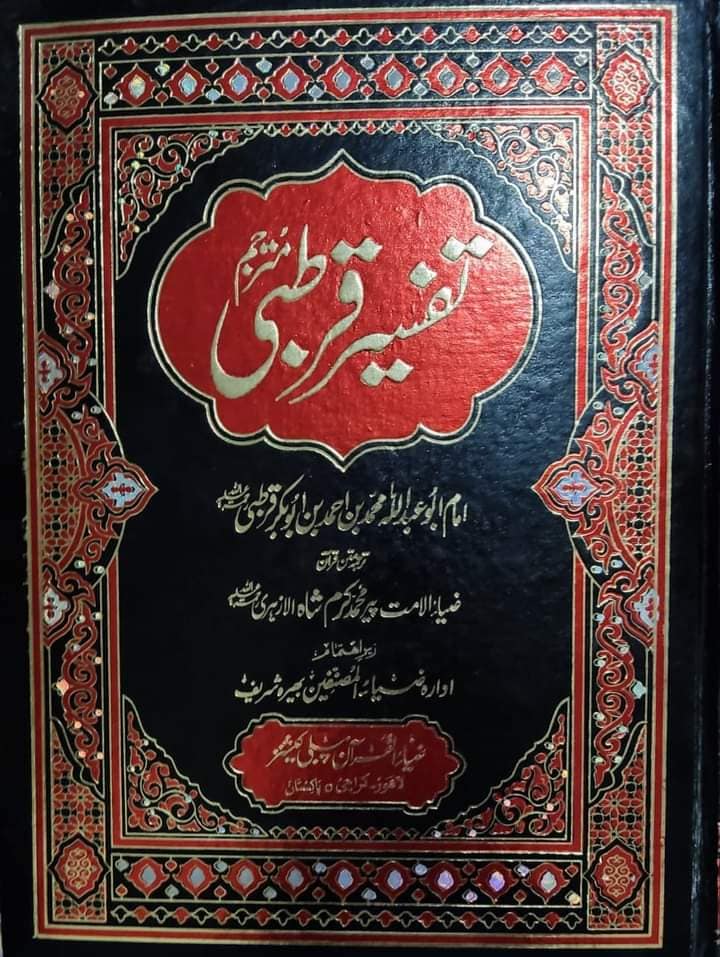 تفسیر قرطبی مترجم
امام ابو عبداللہ محمد بن احمد بن ابوبکر قرطبی رحمۃ اللہ علیہ
ترجمہ متن قرآن
ضیاء الامت پیر محمد کرم شاہ الازہری رحمۃ اللہ علیہ
زیر اہتمام
ادارہ ضیاء المصنفین بھیرہ شریف
ضیاء القرآن پبلی کیشنز
لاہور - کراچی ○ پاکستان